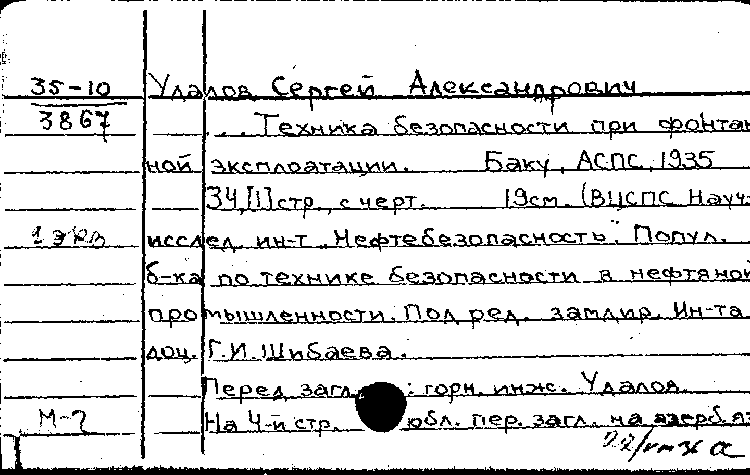 35-10 Удалов Сергей Александрович
3867 ... Техника безопасности при фонтан
ной эксплоатации. Баку, АСПС, 1935
34,[1]стр., с черт. 19см. (ВЦСПС Науч-
1 экз исслед. ин-т „Нефтебезопасность". Попул.
б-ка по технике безопасности в нефтяной
промышленности. Под ред. замдир. Ин-та
доц. Г.И. Шибаева.
Перед загл. : горн. инж. Удалов.
М-2 На 4-й стр. обл. пер. загл. на азерб. яз